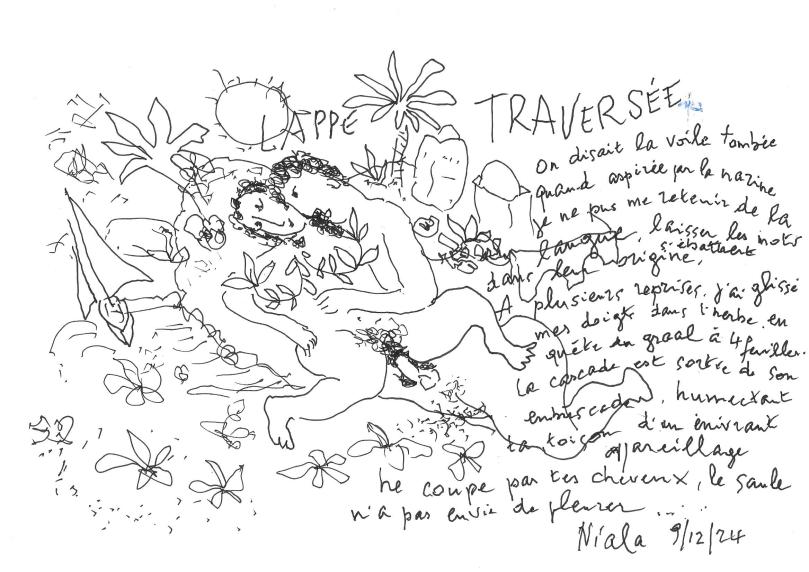 LAPPE TRAVERSÉE
On disait la voile tombée
quand aspirée par la narine
je ne pus me retenir de la
langue, laisser les mots
s'ébattent
dans leur origine,
A plusieurs reprises, j'ai glissé
mes doigts dans l'herbe, en
quête du graal à 4 feuilles.
la cascade est sortie de son
embuscade, humectant
ta toison d'un énivrant
appareillage
ne coupe pas tes cheveux, le saule
n'a pas envie de pleurer .....
Niala 9/12/24